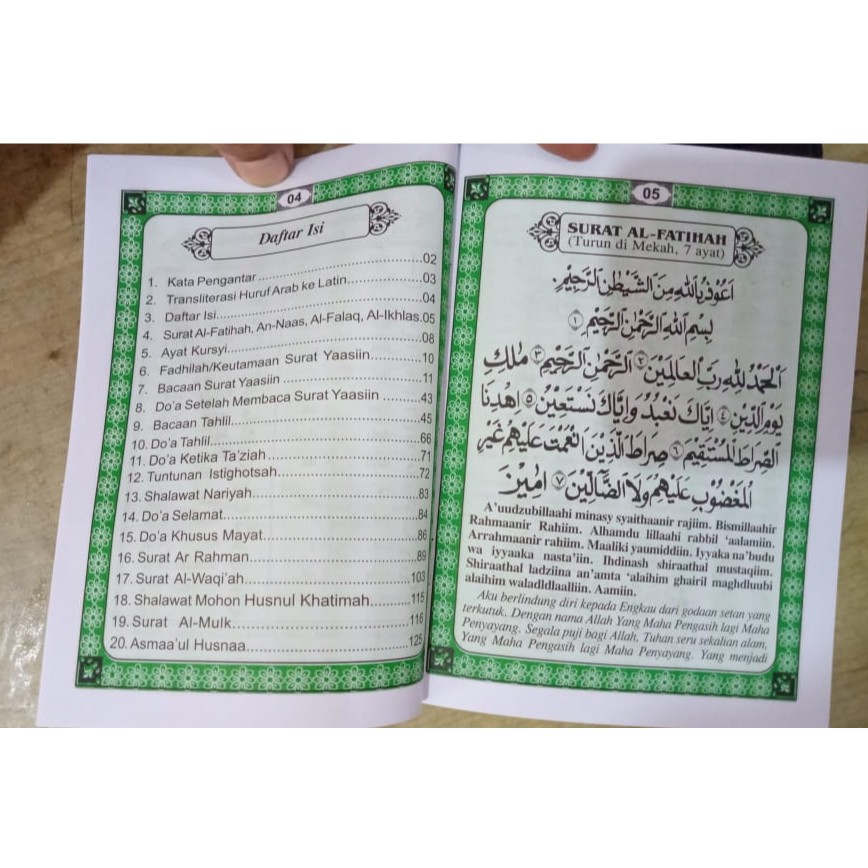 04
Daftar Isi
1. Kata Pengantar..............................02
2. Transliterasi Huruf Arab ke Latin..............03
3. Daftar Isi..............................04
4. Surat Al-Fatihah, An-Naas, Al-Falaq, Al-Ikhlas.05
5. Ayat Kursyi..............................08
6. Fadhilah/Keutamaan Surat Yaasiin ..............10
7. Bacaan Surat Yaasiin ..............................11
8. Do'a Setelah Membaca Surat Yaasiin ...........43
9. Bacaan Tahlil..............................45
10. Do'a Tahlil..............................66
11. Do'a Ketika Ta'ziah..............................71
12. Tuntunan Istighotsah..............................72
13. Shalawat Nariyah..............................83
14. Do'a Selamat..............................84
15. Do'a Khusus Mayat..............................86
16. Surat Ar Rahman..............................89
17. Surat Al-Waqi'ah..............................103
18. Shalawat Mohon Husnul Khatimah..........115
19. Surat Al-Mulk..............................116
20. Asmaa'ul Husnaa..............................125
05
SURAT AL-FATIHAH
(Turun di Mekah, 7 ayat)
اَعُوْذُ بِاللهِ مِنَ الشَّيْطٰنِ الرَّجِيْمِ.
بِسْمِ اللهِ الرَّحْمٰنِ الرَّحِيْمِ ١
اَلْحَمْدُ لِلّٰهِ رَبِّ الْعَالَمِيْنَ ٢ اَلرَّحْمٰنِ الرَّحِيْمِ ٣ مٰلِكِ
يَوْمِ الدِّيْنِ ٤ اِيَّاكَ نَعْبُدُ وَاِيَّاكَ نَسْتَعِيْنُ ٥ اِهْدِنَا
الصِّرَاطَ الْمُسْتَقِيْمَ ٦ صِرَاطَ الَّذِيْنَ اَنْعَمْتَ عَلَيْهِمْ غَيْرِ
الْمَغْضُوْبِ عَلَيْهِمْ وَلَا الضَّالِّيْنَ ٧ اٰمِيْنَ
A'uudzubillaahi minasy syaithaanir rajiim. Bismillaahir
Rahmaanir Rahiim. Alhamdu lillaahi rabbil 'aalamiin.
Arrahmaanir rahiim. Maaliki yaumiddiin. Iyyaka na'budu
wa iyyaaka nasta'iin. Ihdinash shiraathal mustaqiim.
Shiraathal ladziina an'amta 'alaihim ghairil maghdluubi
alaihim waladldlaalliin. Aamiin.
Aku berlindung diri kepada Engkau dari godaan setan yang
terkutuk. Dengan nama Allah Yang Maha Pengasih lagi Maha
Penyayang. Segala puji bagi Allah, Tuhan seru sekalian alam,
Yang Maha Pengasih lagi Maha Penyayang. Yang menjadi